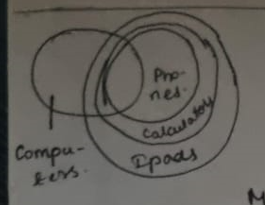 Pho-
nes.
Calculators
Ipads
Compu-
ters.